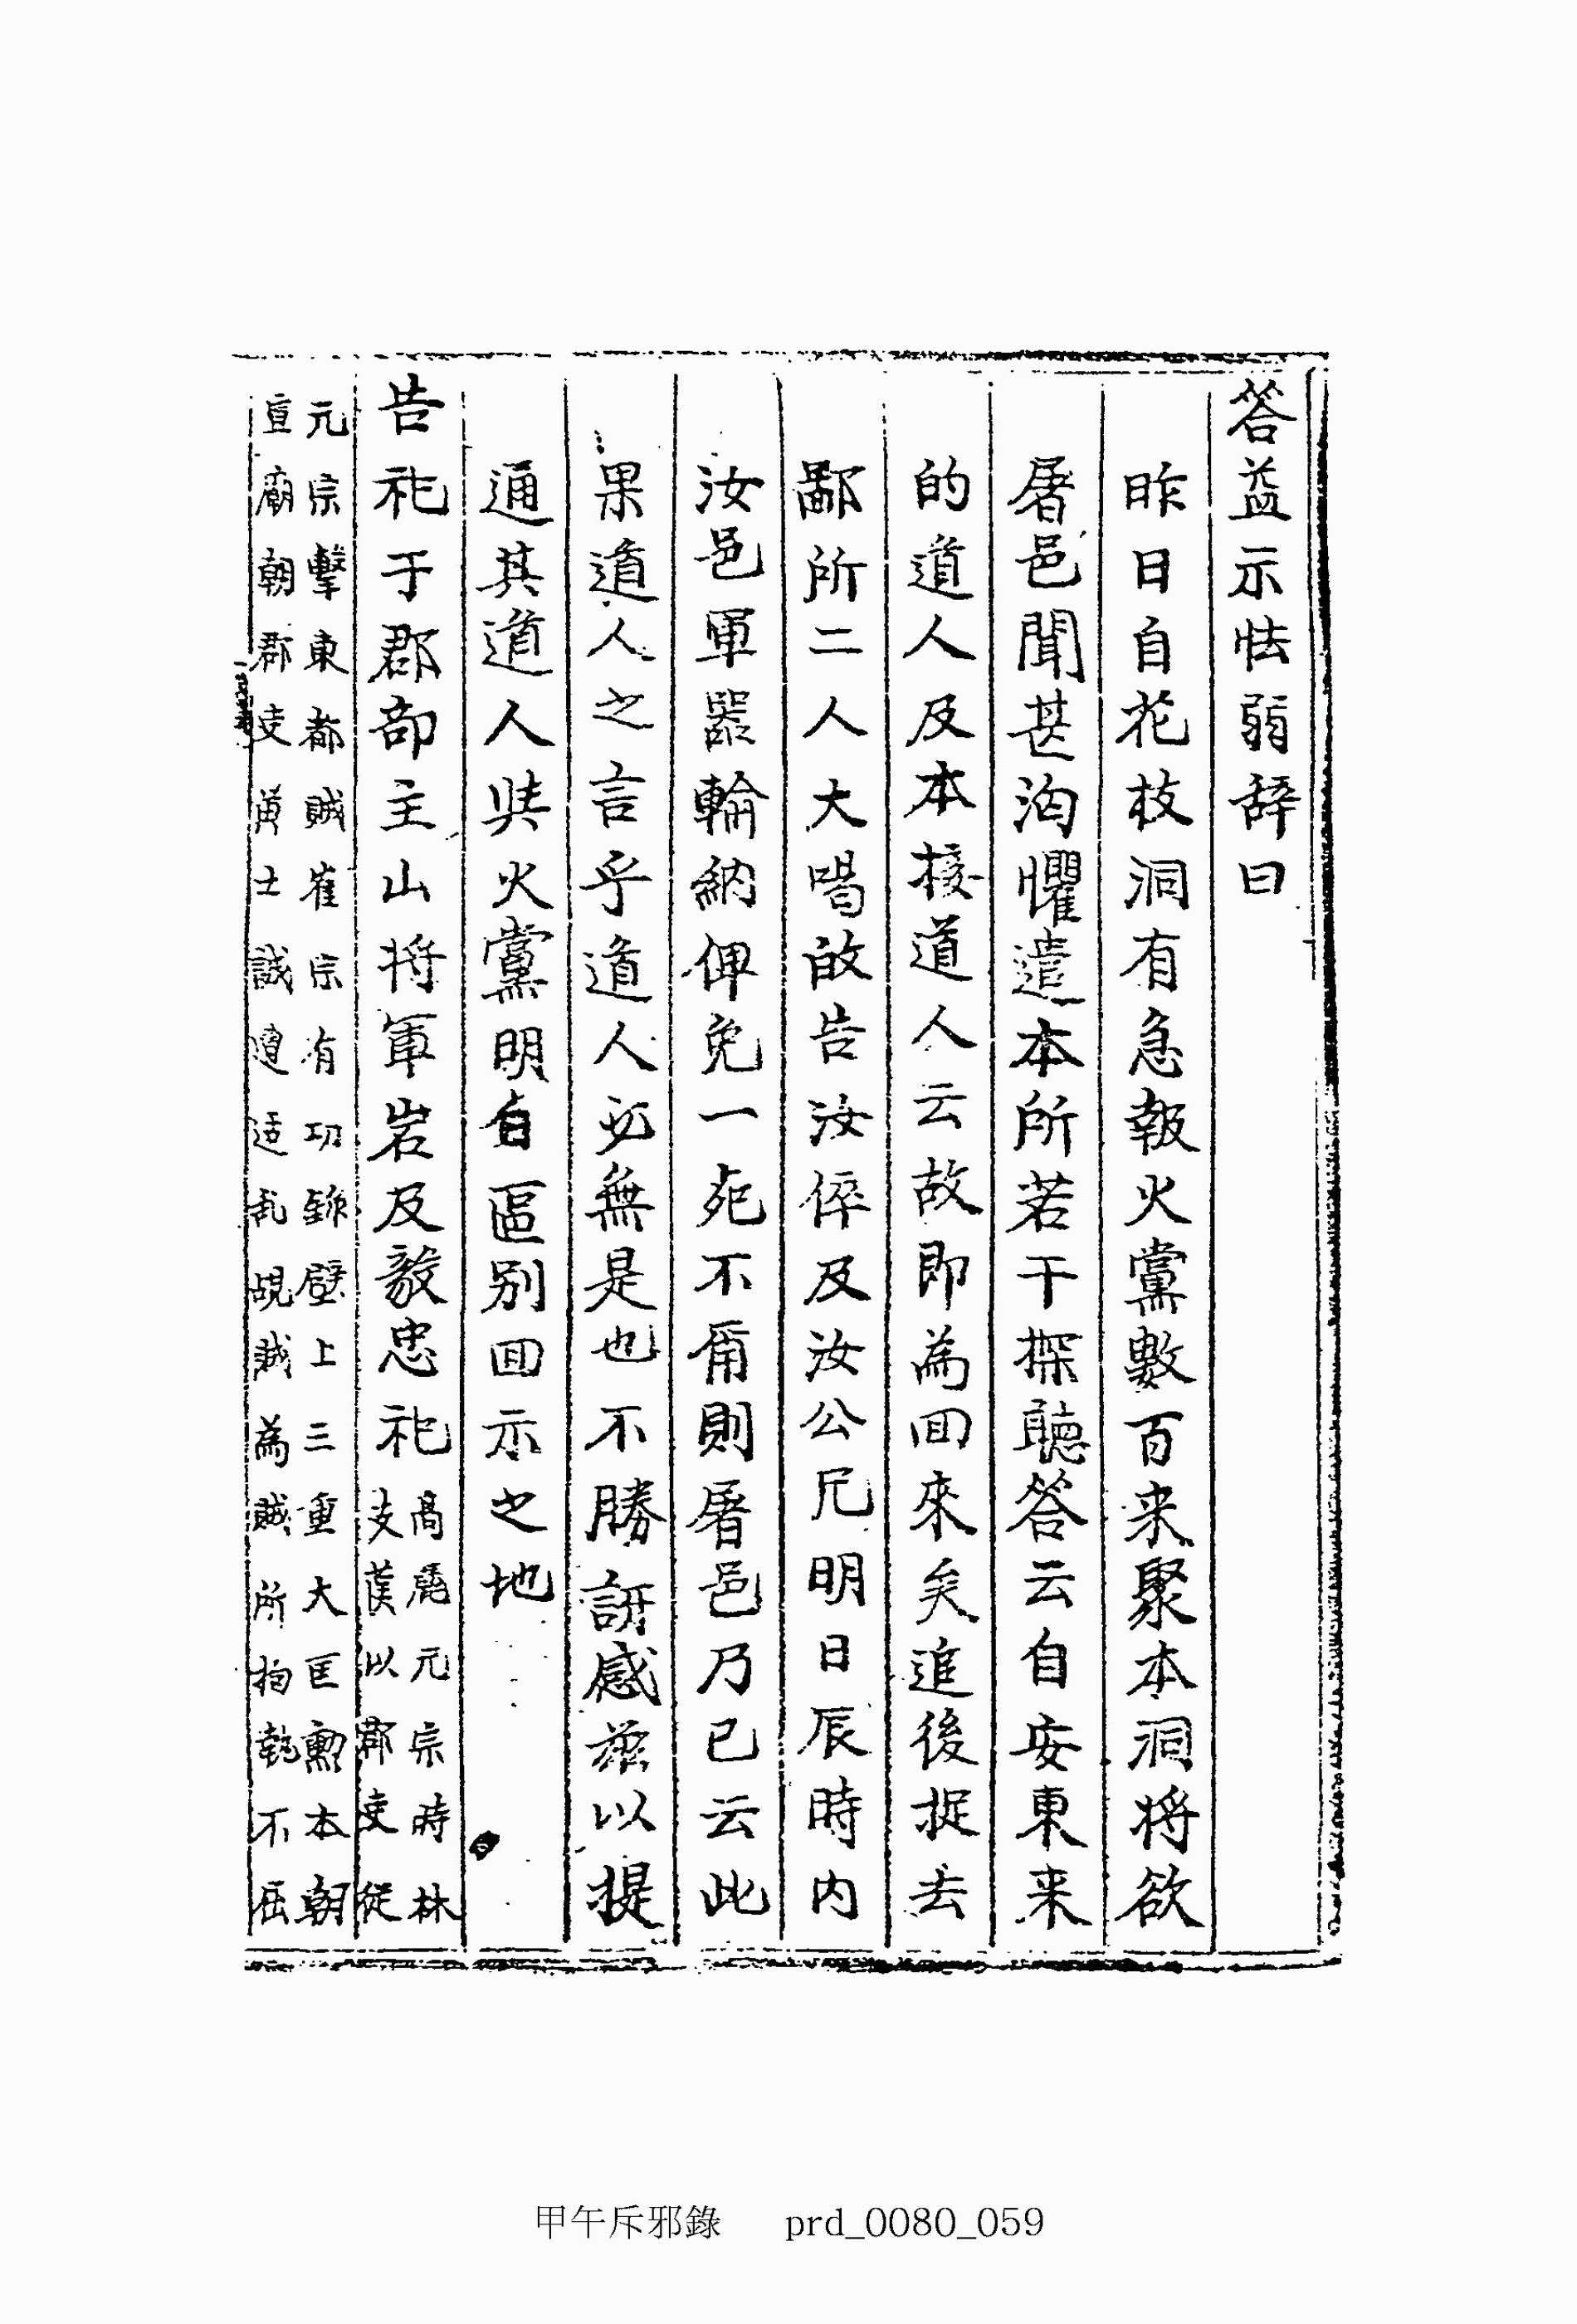 答益示怯弱辞曰
昨日自花枝洞有急報火黨數百来聚本洞將欲
屠邑聞甚洶懼遣本所若干探聽答云自安東来
的道人及本接道人云故即為回來矣追後捉去
鄙所二人大喝放告汝倅及汝公兄明日辰時內
汝邑軍器輪納俾免一死不爾則屠邑乃已云此
果道人之言乎道人必無是也不勝訝感茲以提
通其道人與火黨明白區別回示之地
告祀于郡部主山將軍岩及毅忠祀高麗元宗時林
支漢以郡吏従
元宗擊東都賊崔宗有功錄壁上三重大匡勳本朝
宣廟朝郡吏黃士誠遭适乱覘賊為賊所拘執不屈